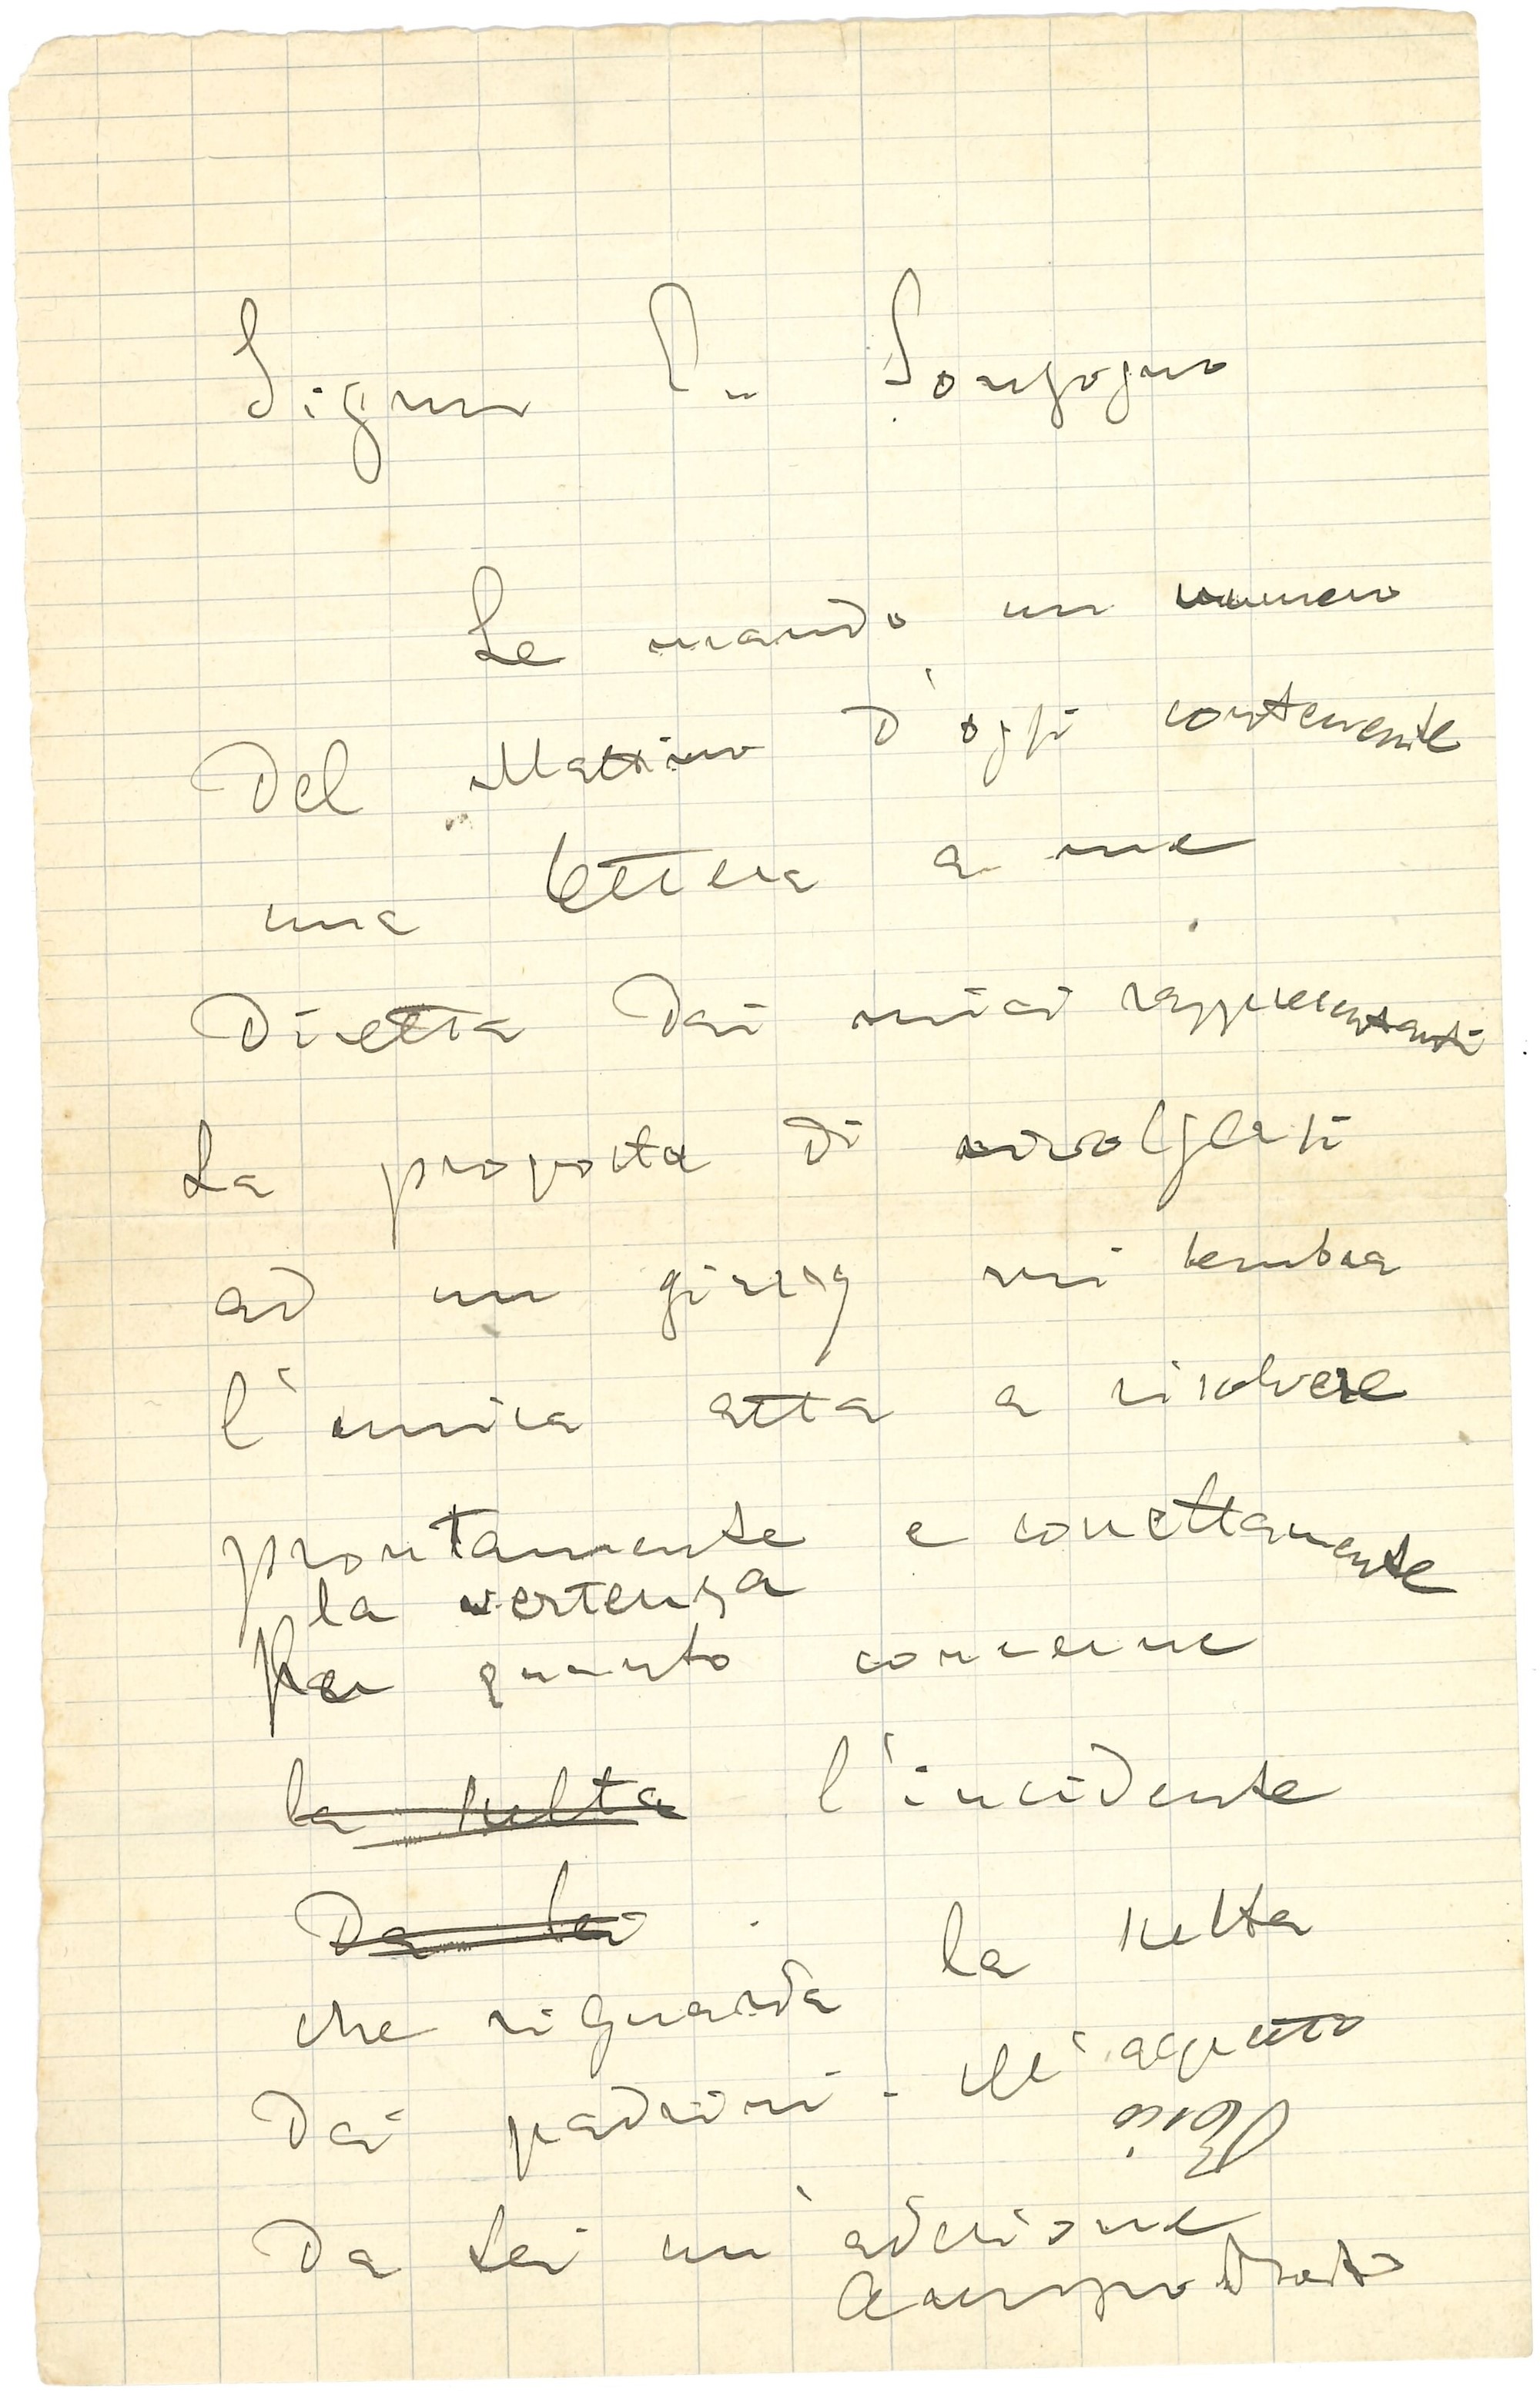 Signor R. Sonzogno
Le mando un numero
del Mattino d'oggi contenente
una lettera a me
diretta dai miei rappresentanti
La proposta di rivolgersi
ad un giurì mi sembra
l'unica atta a risolvere
prontamente e correttamente
la vertenza
Per quanto concerne
la scelta l'incidente
da lei
che riguarda la scelta
dai padrini - M'aspetto
da Lei un'adesione